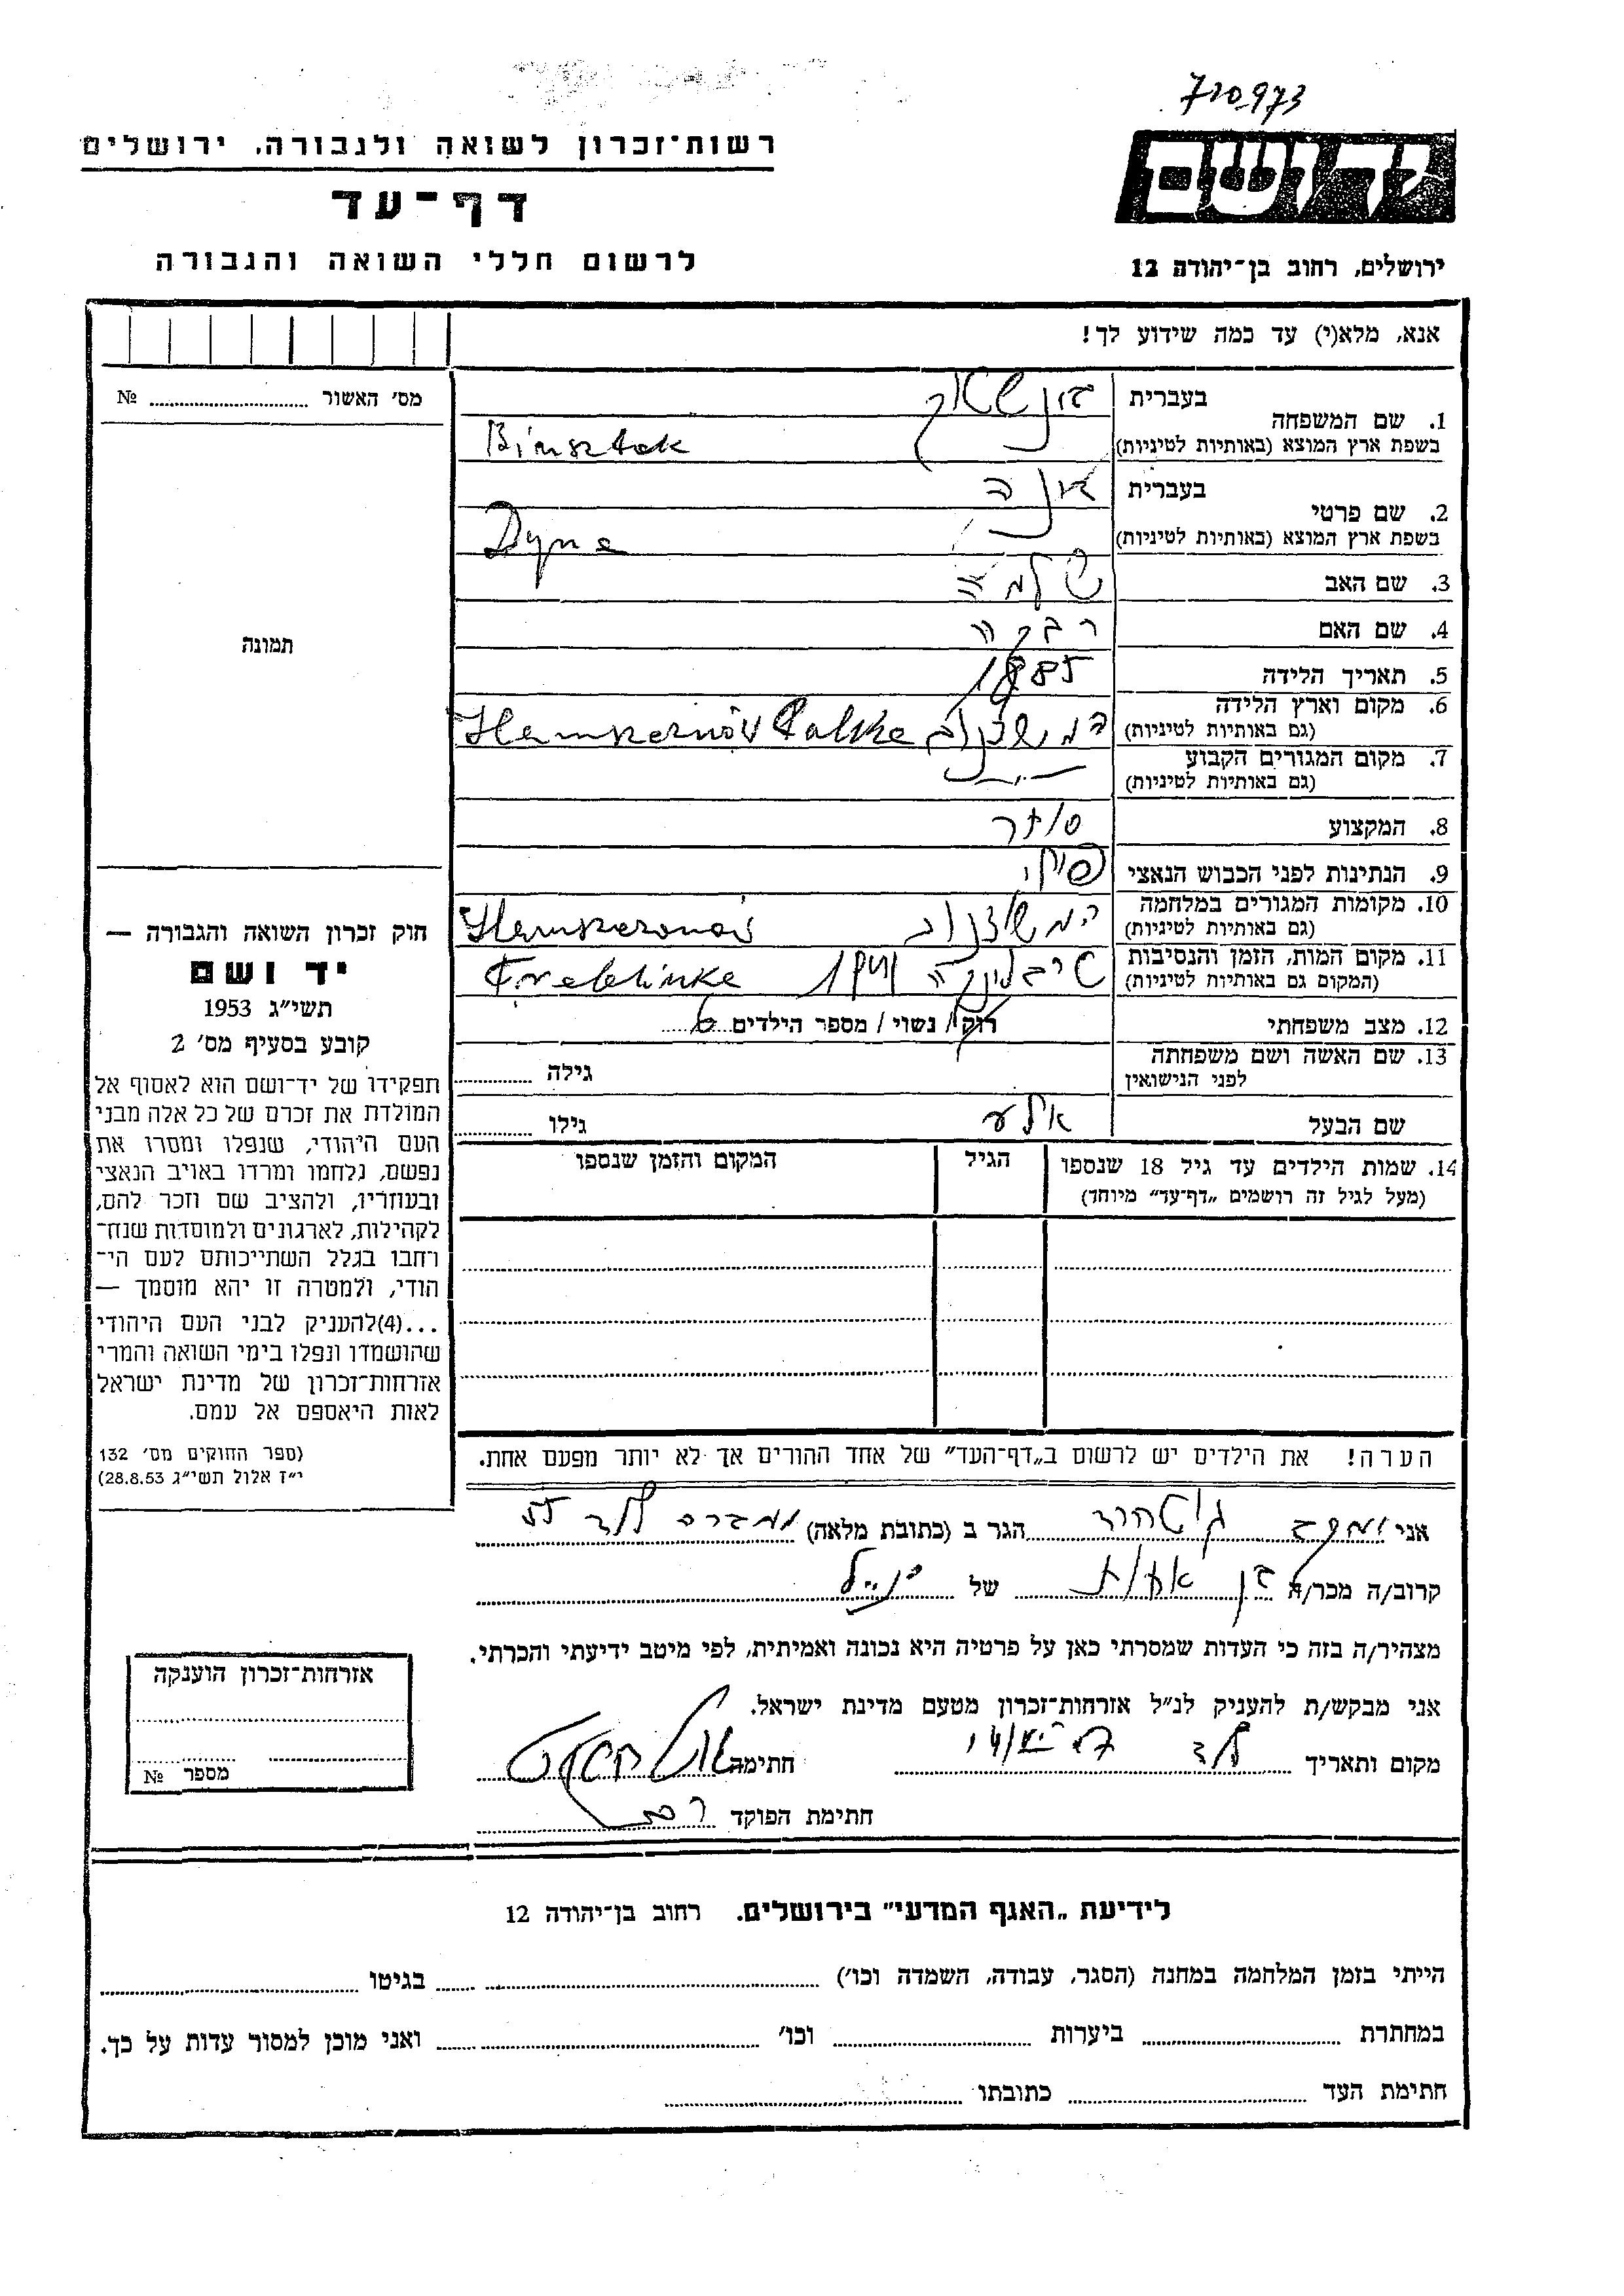 710973
רשות־זכרון לשואה ולגבורה, ירושלים
יד ושם
דף־עד
לרשום חללי השואה והגבורה
ירושלים, רחוב בן־יהודה 12
אנא, מלא(י) עד כמה שידוע לך!
מס׳ האשור № ........
1. שם המשפחה
בעברית
בשפת ארץ המוצא (באותיות לטיניות) Binsztok
2. שם פרטי
בעברית דינה
בשפת ארץ המוצא (באותיות לטיניות) Dyna
3. שם האב שלמה
4. שם האם רבקה
5. תאריך הלידה 1885
6. מקום וארץ הלידה
(גם באותיות לטיניות)
7. מקום המגורים הקבוע
(גם באותיות לטיניות)
8. המקצוע
9. הנתינות לפני הכבוש הנאצי
10. מקומות המגורים במלחמה
(גם באותיות לטיניות)
11. מקום המות, הזמן והנסיבות
(המקום גם באותיות לטיניות) Treblinke
12. מצב משפחתי רוק / נשוי / מספר הילדים
13. שם האשה ושם משפחתה
לפני הנישואין גילה
שם הבעל גילו
14. שמות הילדים עד גיל 18 שנספו
(מעל לגיל זה רושמים „דף־עד״ מיוחד)
הגיל
המקום והזמן שנספו
תמונה
חוק זכרון השואה והגבורה —
יד ושם
תשי״ג 1953
קובע בסעיף מס׳ 2
תפקידו של יד־ושם הוא לאסוף אל
המולדת את זכרם של כל אלה מבני
העם היהודי, שנפלו ומסרו את
נפשם, נלחמו ומרדו באויב הנאצי
ובעוזריו, ולהציב שם וזכר להם,
לקהילות, לארגונים ולמוסדות שנח־
רחבו בגלל השתייכותם לעם הי־
הודי, ולמטרה זו יהא מוסמך —
...(4)להעניק לבני העם היהודי
שהושמדו ונפלו בימי השואה והמרי
אזרחות־זכרון של מדינת ישראל
לאות היאספם אל עמם.
(ספר החוקים מס׳ 132
י״ז אלול תשי״ג 28.8.53)
הערה! את הילדים יש לרשום ב„דף־העד״ של אחד ההורים אך לא יותר מפעם אחת.
אני הגר ב (כתובת מלאה)
קרוב/ה מכר/ה של
מצהיר/ה בזה כי העדות שמסרתי כאן על פרטיה היא נכונה ואמיתית, לפי מיטב ידיעתי והכרתי.
אני מבקש/ת להעניק לנ״ל אזרחות־זכרון מטעם מדינת ישראל.
מקום ותאריך לוד חתימה
חתימת הפוקד
אזרחות־זכרון הוענקה
מספר №
לידיעת „האגף המדעי״ בירושלים. רחוב בן־יהודה 12
הייתי בזמן המלחמה במחנה (הסגר, עבודה, השמדה וכו׳) בגיטו
במחתרת ביערות וכו׳ ואני מוכן למסור עדות על כך.
חתימת העד כתובתו